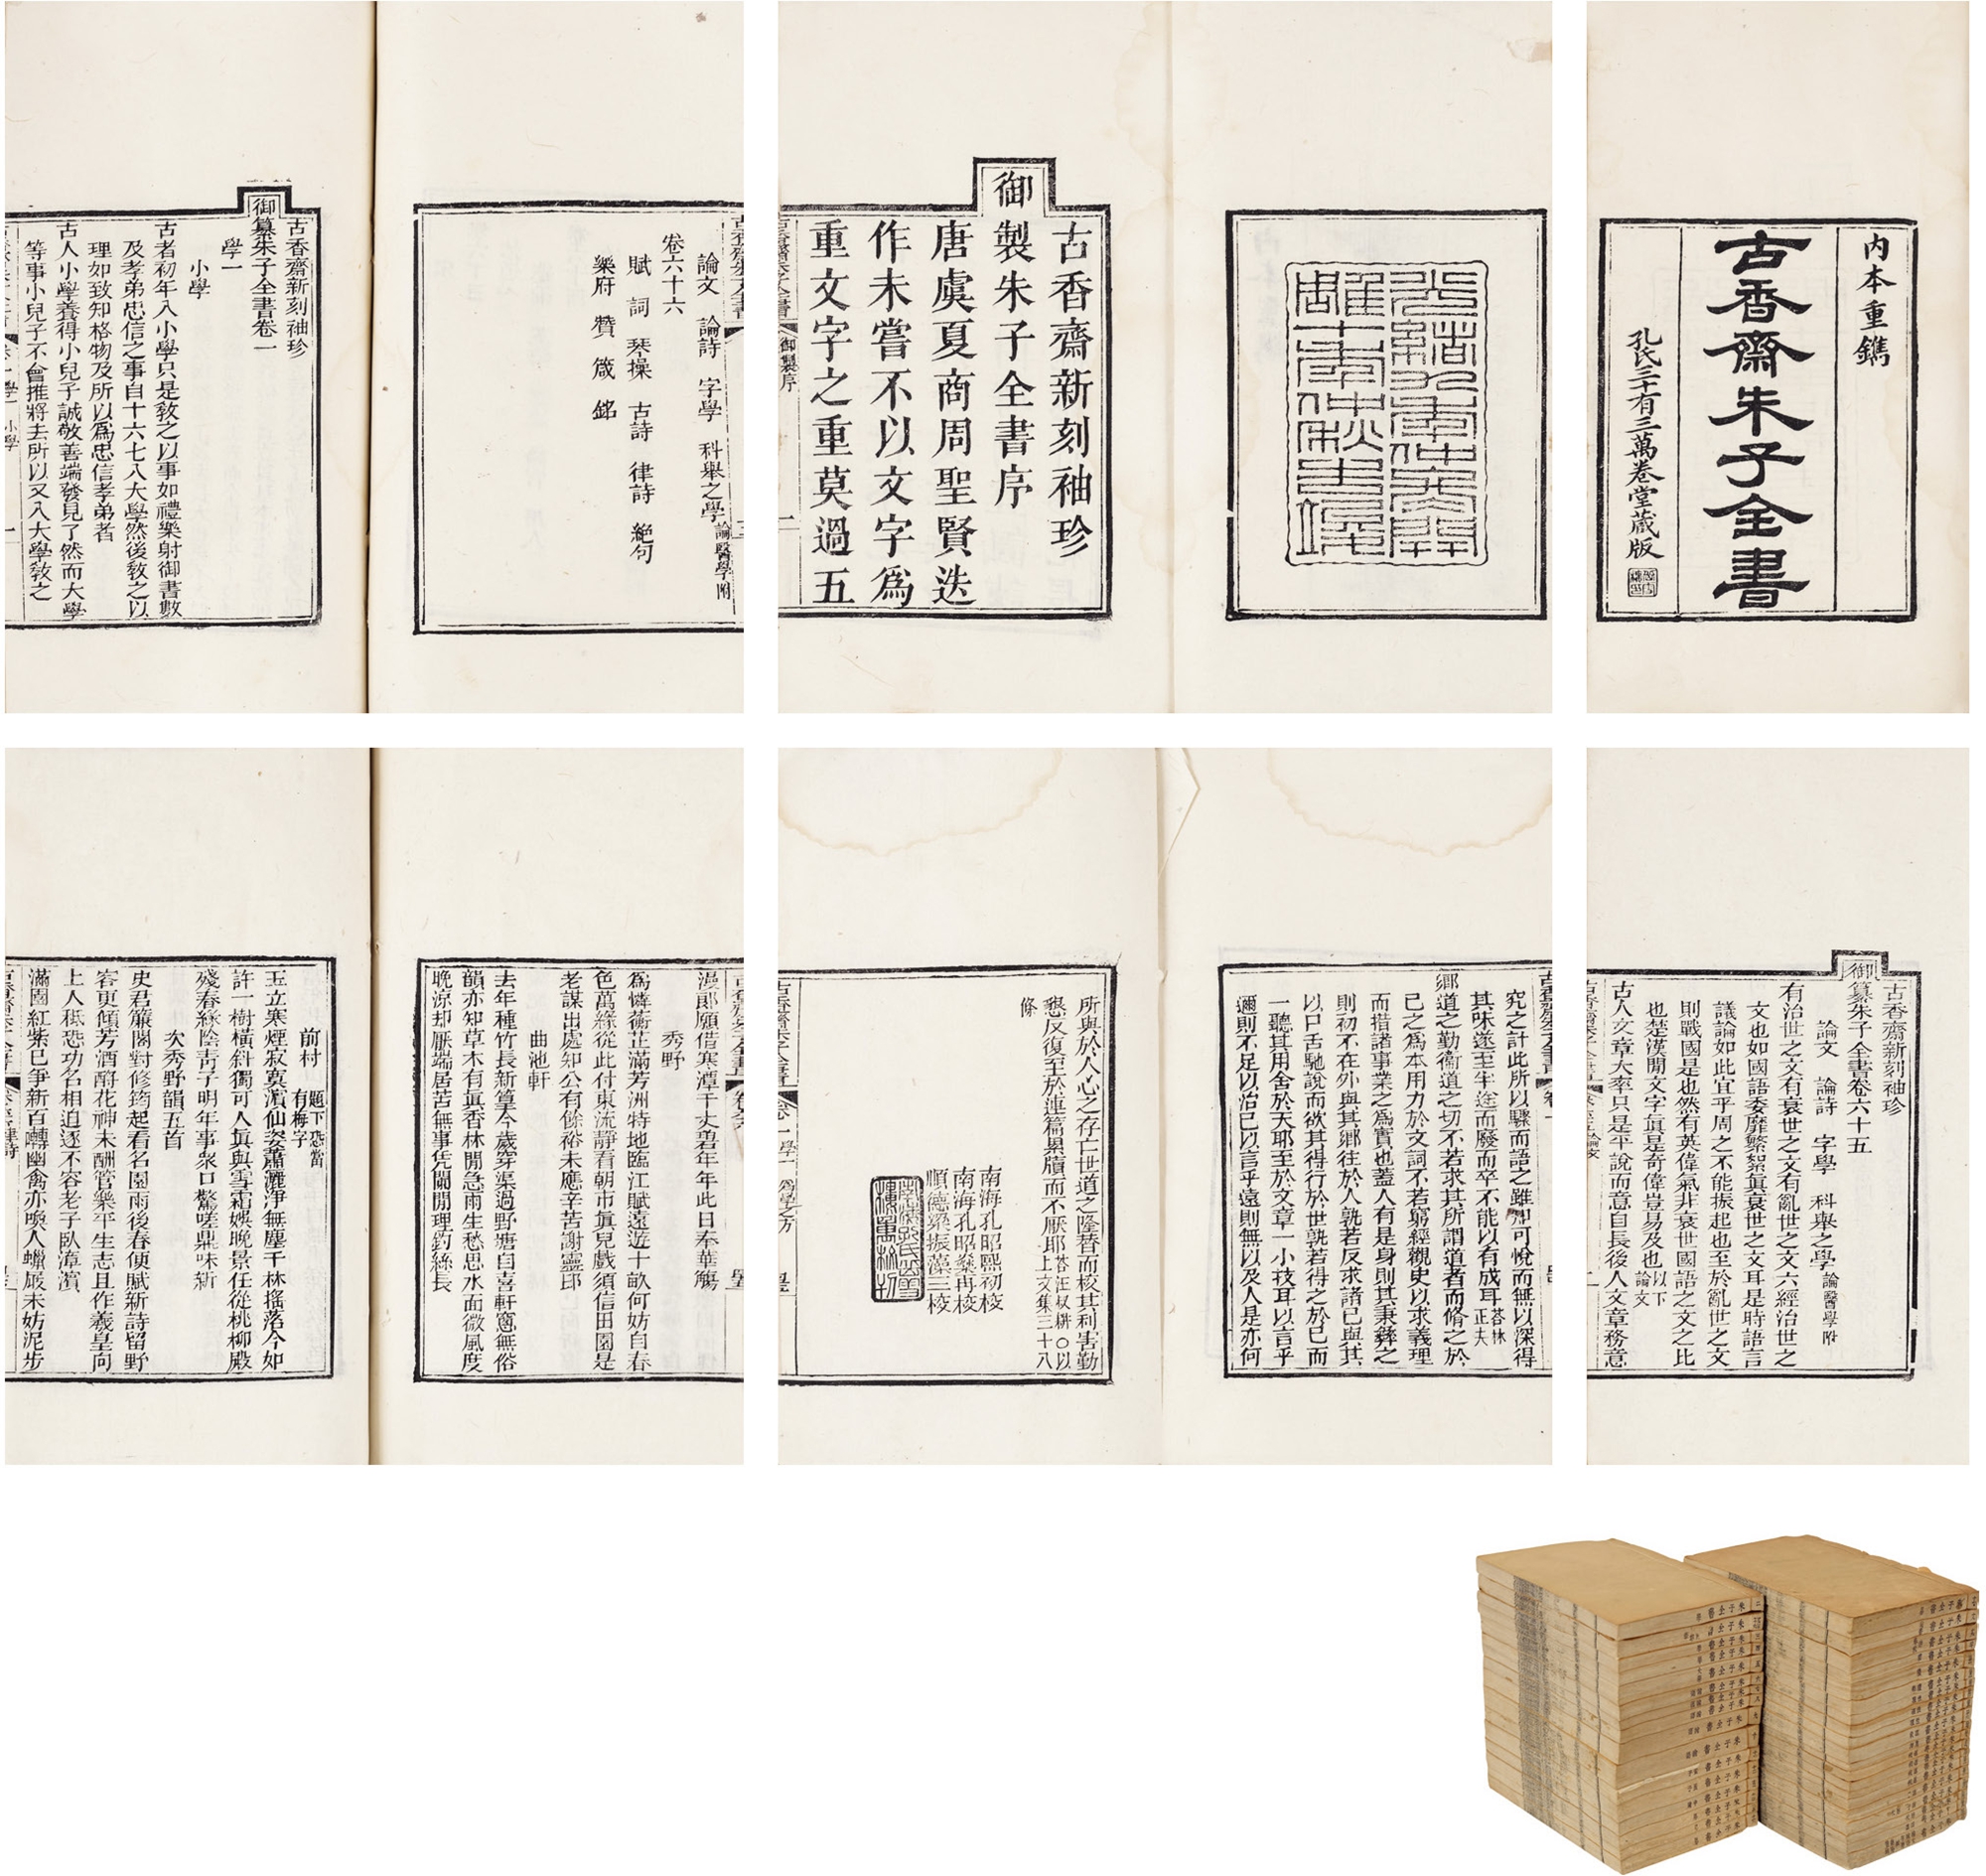 内本重鐫
古香齋朱子全書
孔氏三十有三萬卷堂藏版
古香齋新刻袖珍
御製朱子全書序
唐虞夏商周聖賢迭
作未嘗不以文字爲
重文字之重莫過五
御製序
論文 論詩 字學 科舉之學論醫學附
卷六十六
賦 詞 琴操 古詩 律詩 絕句
樂府 贊 箴 銘
古香齋新刻袖珍
御纂朱子全書卷一
學一
小學
古者初年入小學只是敎之以事如禮樂射御書數
及孝弟忠信之事自十六七八大學然後敎之以
理如致知格物及所以爲忠信孝弟者
古人小學養得小兒子誠敬善端發見了然而大學
等事小兒子不會推將去所以又入大學敎之
古香齋新刻袖珍
御纂朱子全書卷六十五
論文 論詩 字學 科舉之學論醫學附
有治世之文有衰世之文有亂世之文六經治世之
文也如國語委靡繁絮眞衰世之文耳是時語言
議論如此宜乎周之不能振起也至於亂世之文
則戰國是也然有英偉氣非衰世國語之文之比
也楚漢間文字眞是奇偉豈易及也以下論文
古人文章大率只是平說而意自長後人文章務意
究之計此所以驟而語之雖知可悅而無以深得
其味遂至半途而廢而卒不能以有成耳答林正夫
鄉道之勤衞道之切不若求其所謂道者而脩之於
已之爲本用力於文詞不若窮經觀史以求義理
而措諸事業之爲實也蓋人有是身則其秉彝之
則初不在外與其鄉往於人孰若反求諸已與其
以口舌馳說而欲其得行於世孰若得之於已而
一聽其用舍於天耶至於文章一小技耳以言乎
邇則不足以治已以言乎遠則無以及人是亦何
所與於人心之存亡世道之隆替而校其利害勤
懇反復至於連篇累牘而不厭耶答汪叔耕○以上文集三十八
條
南海孔昭熙初校
南海孔昭燊再校
順德梁振藻三校
漫郎願借寒潭千丈碧年年此日奉華觴
秀野
爲憐蘅芷滿芳洲特地臨江賦遠遊十畝何妨自春
色萬緣從此付東流靜看朝市眞兒戲須信田園是
老謀出處知公有餘裕未應辛苦謝靈邱
曲池軒
去年種竹長新篁今歲穿渠過野塘自喜軒窻無俗
韻亦知草木有眞香林間急雨生愁思水面微風度
晚涼却厭端居苦無事凭闌閒理釣絲長
前村 題下恐當有梅字
玉立寒煙寂寞濱仙姿蕭灑淨無塵千林搖落今如
許一樹橫斜獨可人眞與雪霜娛晚景任從桃柳殿
殘春綠陰靑子明年事衆口驚嗟鼎味新
次秀野韻五首
史君簾閤對修筠起看名園雨後春便賦新詩留野
客更傾芳酒酹花神未酬管樂平生志且作羲皇向
上人秪恐功名相迫逐不容老子臥漳濱
滿園紅紫已爭新百囀幽禽亦喚人蠟屐未妨泥步